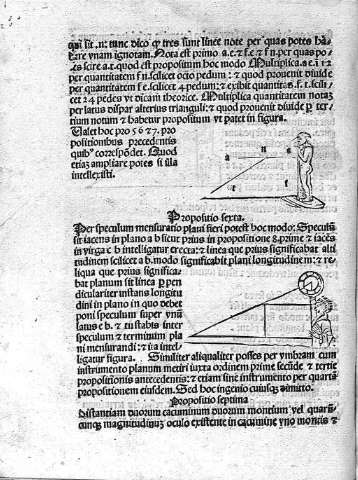 qui sit .n: tunc dico ꝙ tres sunt linee note per quas potes ha⸗
bere vnam ignotam. Nota est primo a.e: f.e ⁊ f n. per quas po⸗
tes scire a t. quod est propositum hoc modo Multiplica. a e. i 12
per quantitatem f n. scilicet octo pedum: ⁊ quod prouenit diuide
per quantitatem f e. scilicet 4 pedum: ⁊ exibit quantitas. s t. scili⸗
cet 24 pedes vt dicunt theorice. Multiplica quantitatem notas
per latus dispar alterius trianguli: ⁊ quod prouenit diuide per ter⸗
tium notum ⁊ habetur propositum vt patet in figura.
Ualet hoc pro 5 6 ⁊ 7. pro
positionibus precedentis
quibꝰ correspōdet. Quod
etiaʒ ampliare potes si illa
intellexisti.
a n s
r t
Propositio sexta.
Per speculum mensuratio plani fieri potest hoc modo: Speculū
sit iacens in plano a b sicut prius in propositione 8 prime ⁊ iacēs
in virga c b intelligatur erecta: ⁊ linea que prius significabat alti
tudinem scilicet a b. modo significabit plani longitudinem: ⁊ re⸗
liqua que prius significa⸗
bat planum sit linea ꝑpen
diculariter instans longitu
dini in plano in quo debet
poni speculum super vnū
latus c b. ⁊ tu stabis inter
speculum ⁊ terminum pla
ni mensurandi: ⁊ ita intel⸗
ligatur figura. . Similiter aliqualiter posses per vmbram cum
instrumento planum metiri iuxta ordinem prime secūde ⁊ tertie
propositionis antecedentis: ⁊ etiam sine instrumento per quartā
propositionem eiusdem. Sed hoc ingenio cuiusꝗ dimitto.
Propositio septima
Distantiam duorum cacuminum duorum montium vel quarū⸗
cunꝗ magnitudinuʒ oculo existente in cacumine vno montis ⁊